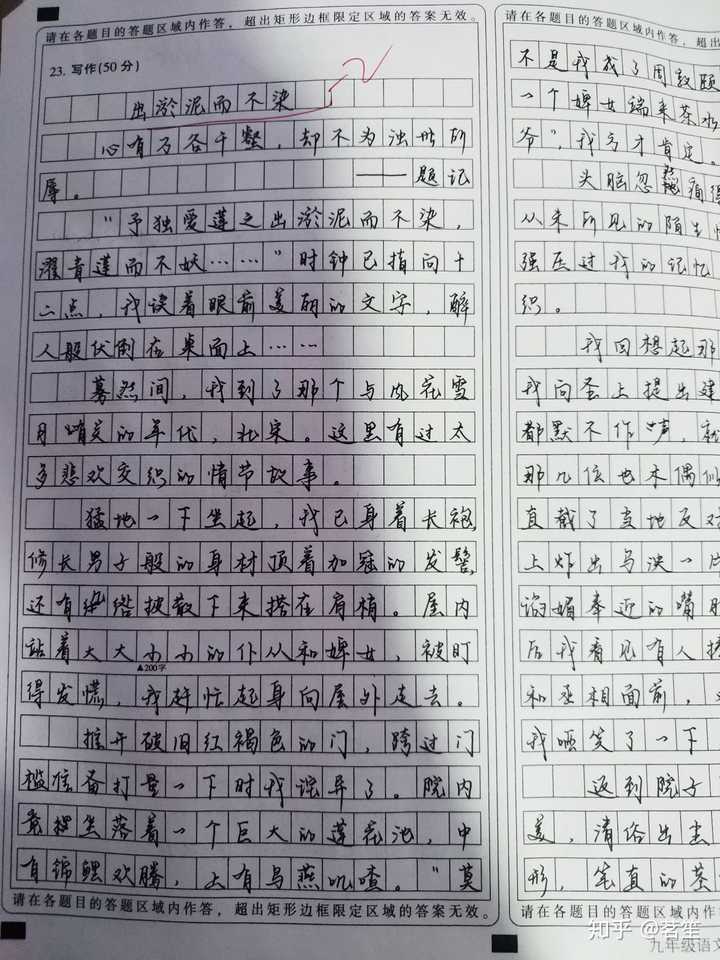 请在各题目的答题区域内作答，超出矩形边框限定区域的答案无效。
23. 写作(50分)
出淤泥而不染
心有万谷千壑，却不为浊世所
辱。——题记
“予独爱莲之出淤泥而不染，
濯青莲而不妖……”时钟已指向十
二点，我读着眼前美丽的文字，醉
人般伏倒在桌面上……
蓦然间，我到了那个与风花雪
月相关的年代，北宋。这里有过太
多悲欢交织的情节故事。
猛地一下坐起，我已身着长袍，
修长男子般的身材顶着加冠的发髻，
还有绺披散下来搭在肩梢。屋内
站着大大小小的仆从和婢女，被盯
▲200字
得发慌，我赶忙起身向屋外走去。
推开破旧红褐色的门，跨过门
槛准备打量一下时我诧异了。院内
竟坐落着一个巨大的莲花池，中
有锦鲤欢腾，上有鸟燕叽喳。“莫
请在各题目的答题区域内作答，超出矩形边框限定区域的答案无效。
请在各题目的答题区域内作答，超
不是我成了周敦颐
一个婢女端来茶水
爷”，我方才肯定。
头脑忽然痛得
从未所见的陌生
强压过我的记忆
织。
我回想起那
我向圣上提出建
都默不作声，就
那几位也木偶似
直截了当地反对
上炸出乌泱一片
谄媚奉迎的嘴脸
后我看见有人
和丞相面前，
我哑笑了一下
返到院子
美，清俗出尘
形，笔直的茎
请在各题目的答题区域内作答
九年级语文
知乎 @茗笙